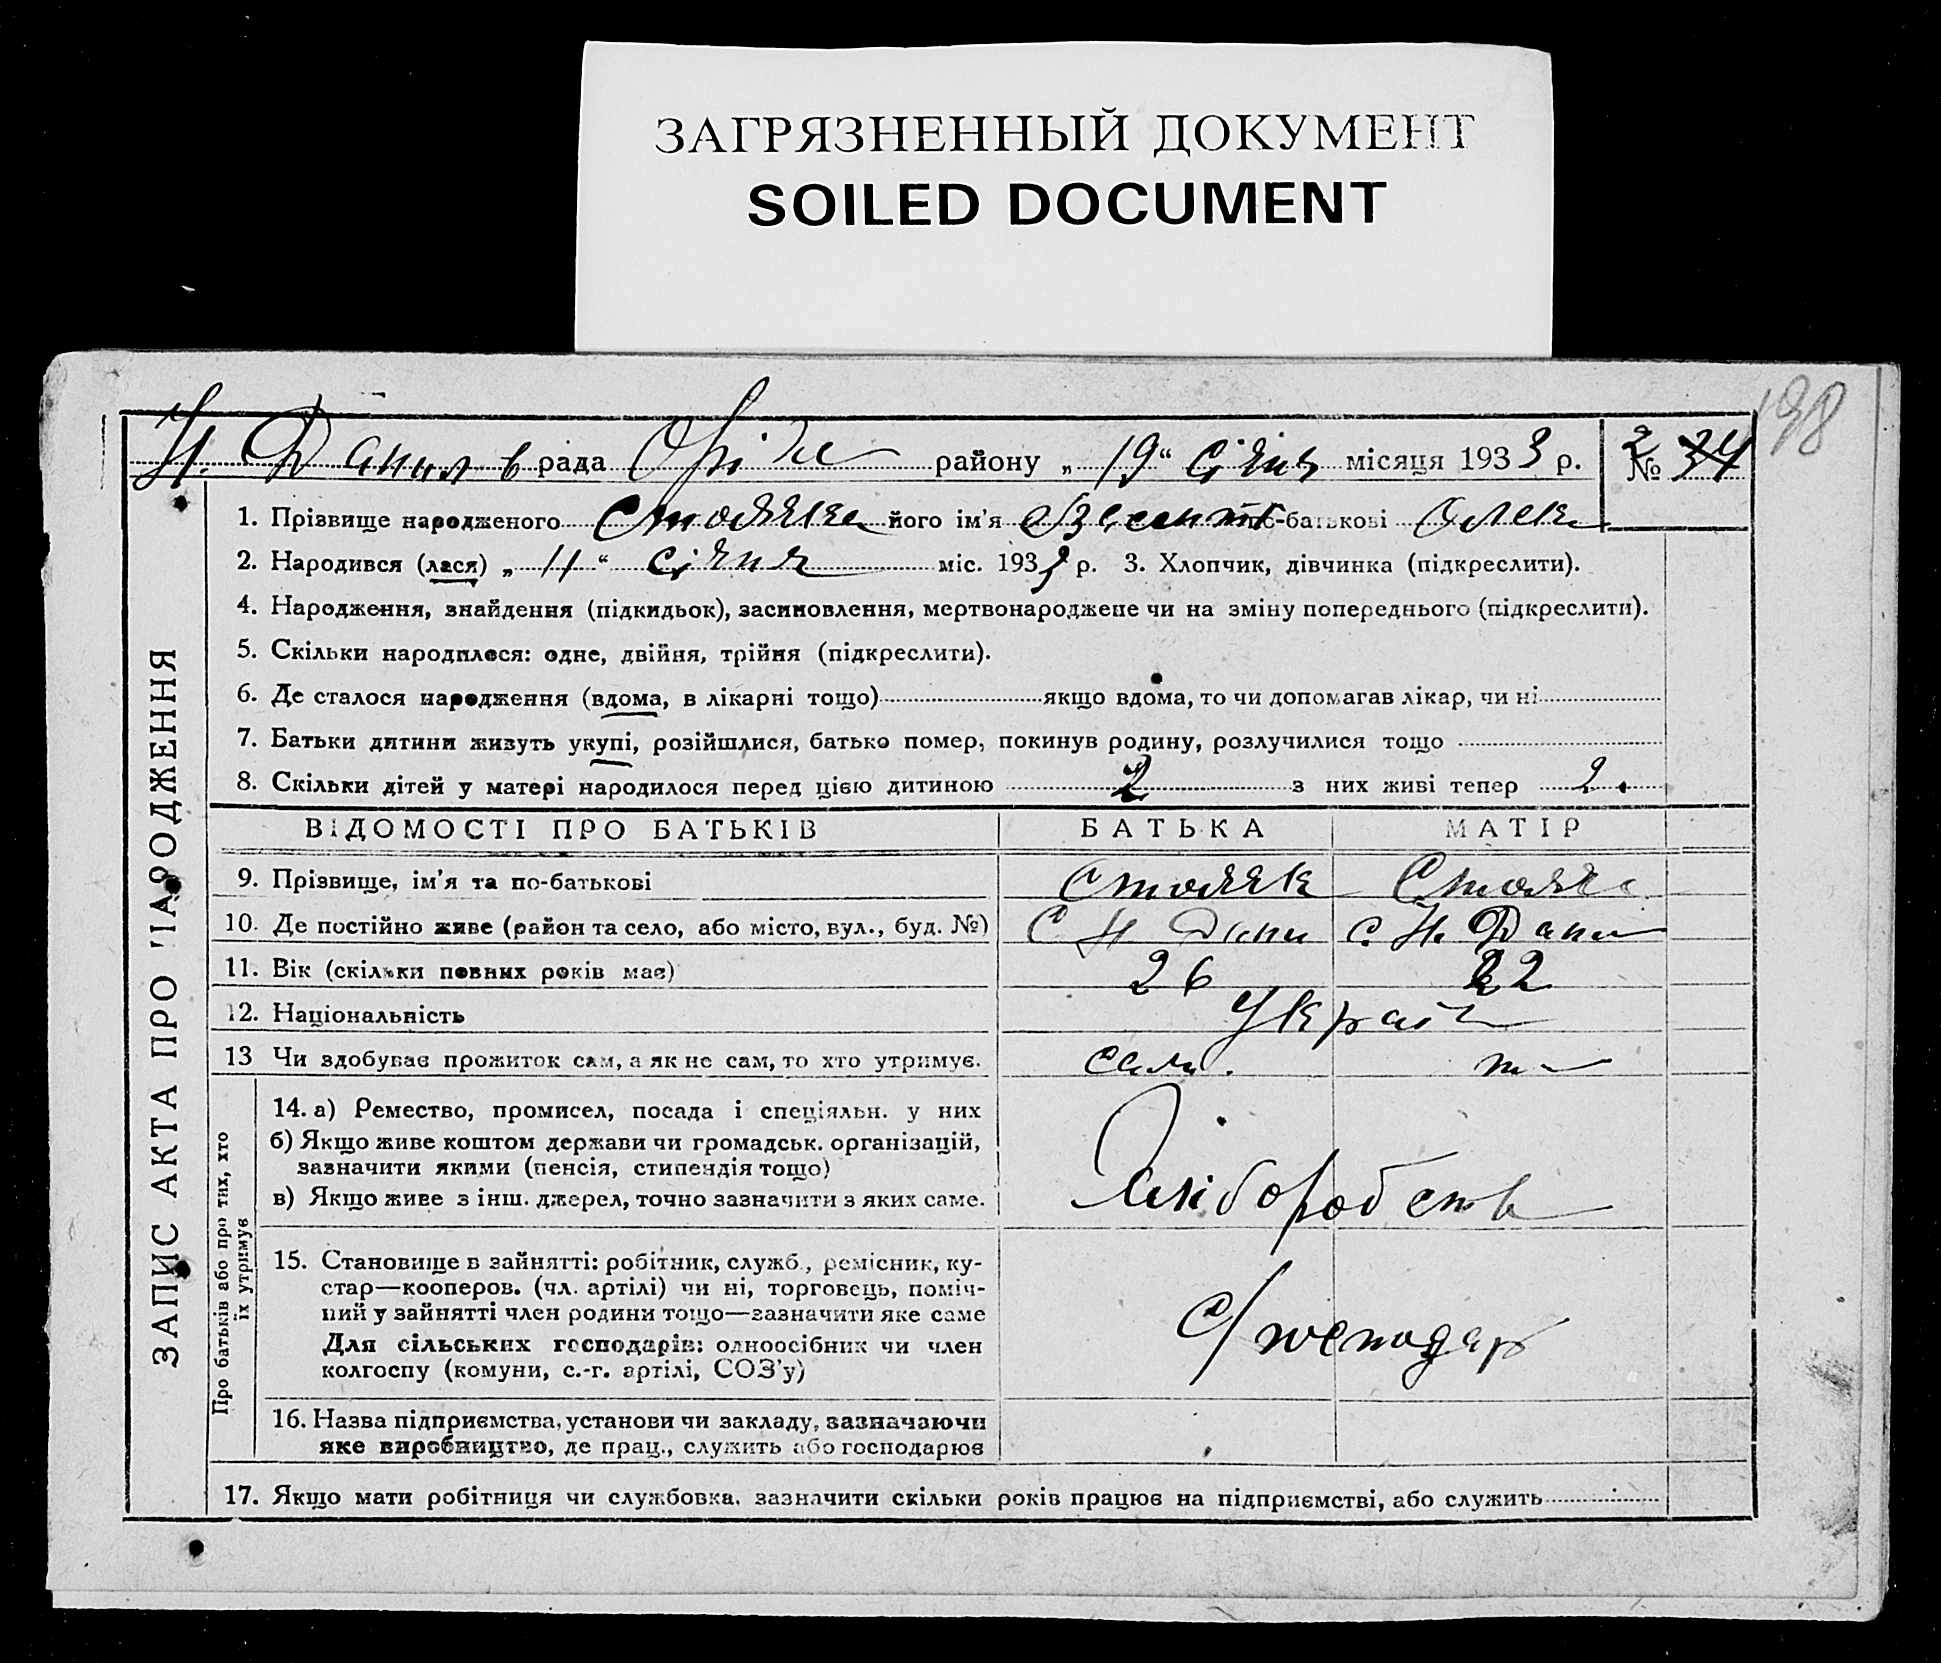 ЗАГРЯЗНЕННЫЙ ДОКУМЕНТ
SOILED DOCUMENT
198
Н. Данилів рада Оріхе району „19“ січня місяця 1933 р. № 2 34
ЗАПИС АКТА ПРО НАРОДЖЕННЯ
1. Прізвище народженого його ім'я по-батькові Олек
2. Народився (лася) „11“ січня міс. 1933 р. 3. Хлопчик, дівчинка (підкреслити).
4. Народження, знайдення (підкидьок), засиновлення, мертвонароджене чи на зміну попереднього (підкреслити).
5. Скільки народилося: одне, двійня, трійня (підкреслити).
6. Де сталося народження (вдома, в лікарні тощо) якщо вдома, то чи допомагав лікар, чи ні
7. Батьки дитини живуть укупі, розійшлися, батько помер, покинув родину, розлучилися тощо
8. Скільки дітей у матері народилося перед цією дитиною 2 з них живі тепер 2
ВІДОМОСТІ ПРО БАТЬКІВ БАТЬКА МАТІР
9. Прізвище, ім'я та по-батькові
10. Де постійно живе (район та село, або місто, вул., буд. №) С. Н. Дани с. Н. Дани
11. Вік (скільки повних років має) 26 22
12. Національність Україн
13 Чи здобуває прожиток сам, а як не сам, то хто утримує. сам.
Про батьків або про тих, хто їх утримує
14. а) Ремество, промисел, посада і спеціяльн. у них
б) Якщо живе коштом держави чи громадськ. організацій,
зазначити якими (пенсія, стипендія тощо)
в) Якщо живе з інш. джерел, точно зазначити з яких саме.
Хліборобств
15. Становище в зайнятті: робітник, служб., ремісник, ку-
стар—кооперов. (чл. артілі) чи ні, торговець, поміч-
ний у зайнятті член родини тощо—зазначити яке саме
Для сільських господарів: одноосібник чи член
колгоспу (комуни, с.-г. артілі, СОЗ'у)
с/господар
16. Назва підприємства, установи чи закладу, зазначаючи
яке виробництво, де прац., служить або господарює
17. Якщо мати робітниця чи службовка, зазначити скільки років працює на підприємстві, або служить